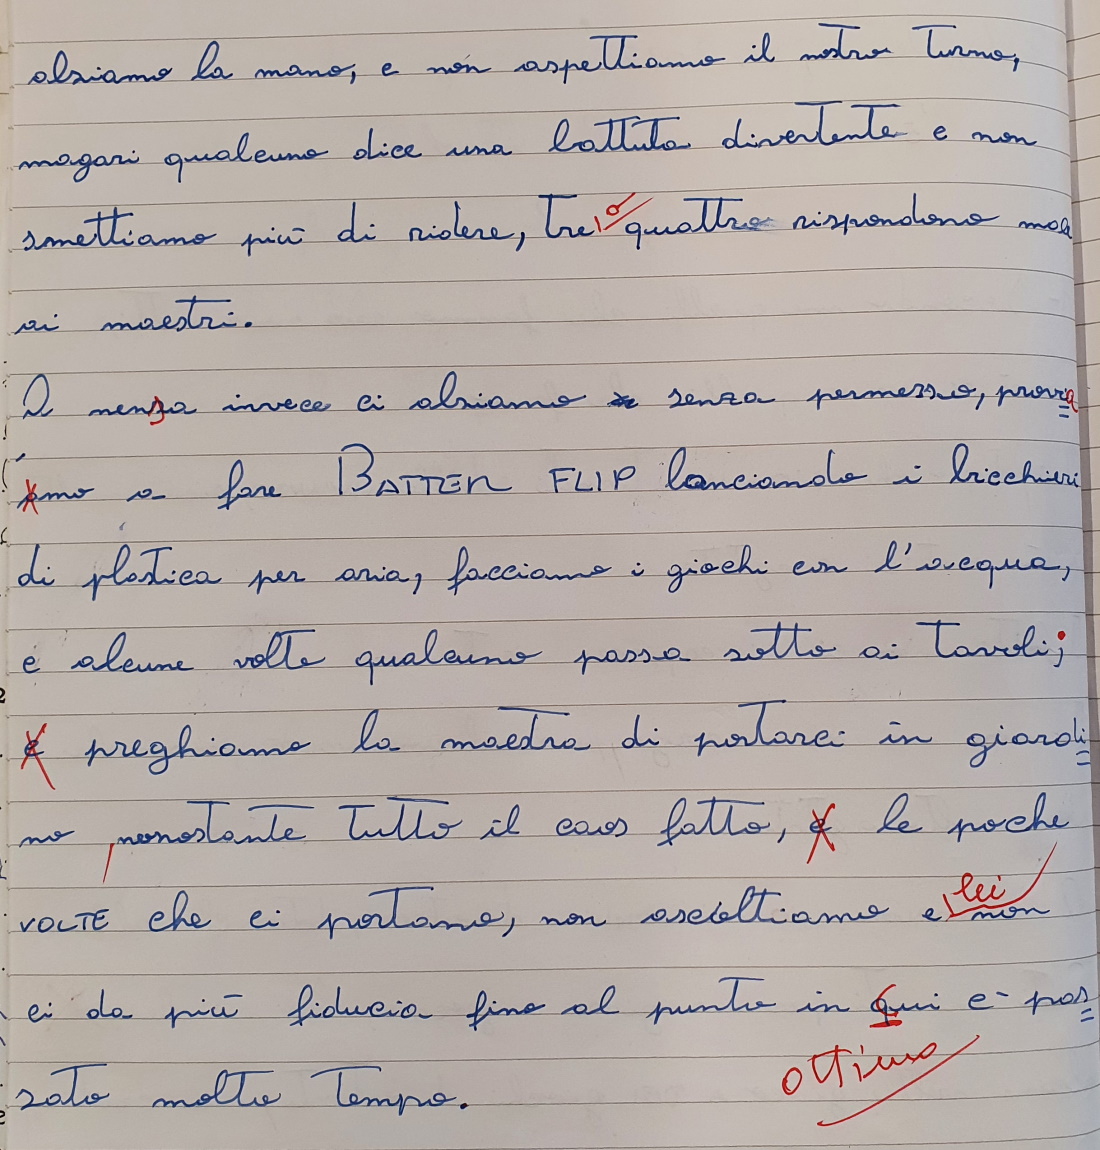 alziamo la mano, e non aspettiamo il nostro turno,
magari qualcuno dice una battuta divertente e non
smettiamo più di ridere, tre o quattro rispondono male
ai maestri.
A mensa invece ci alziamo senza permesso, provia
mo a fare BATTEN FLIP lanciando i bicchieri
di plastica per aria, facciamo i giochi con l'acqua,
e alcune volte qualcuno passa sotto ai tavoli;
preghiamo la maestra di portarci in giardi
no nonostante tutto il caos fatto, le poche
VOLTE che ci portano, non ascoltiamo e lei non
ci da più fiducia fino al punto in cui è pas
sato molto tempo.
ottimo